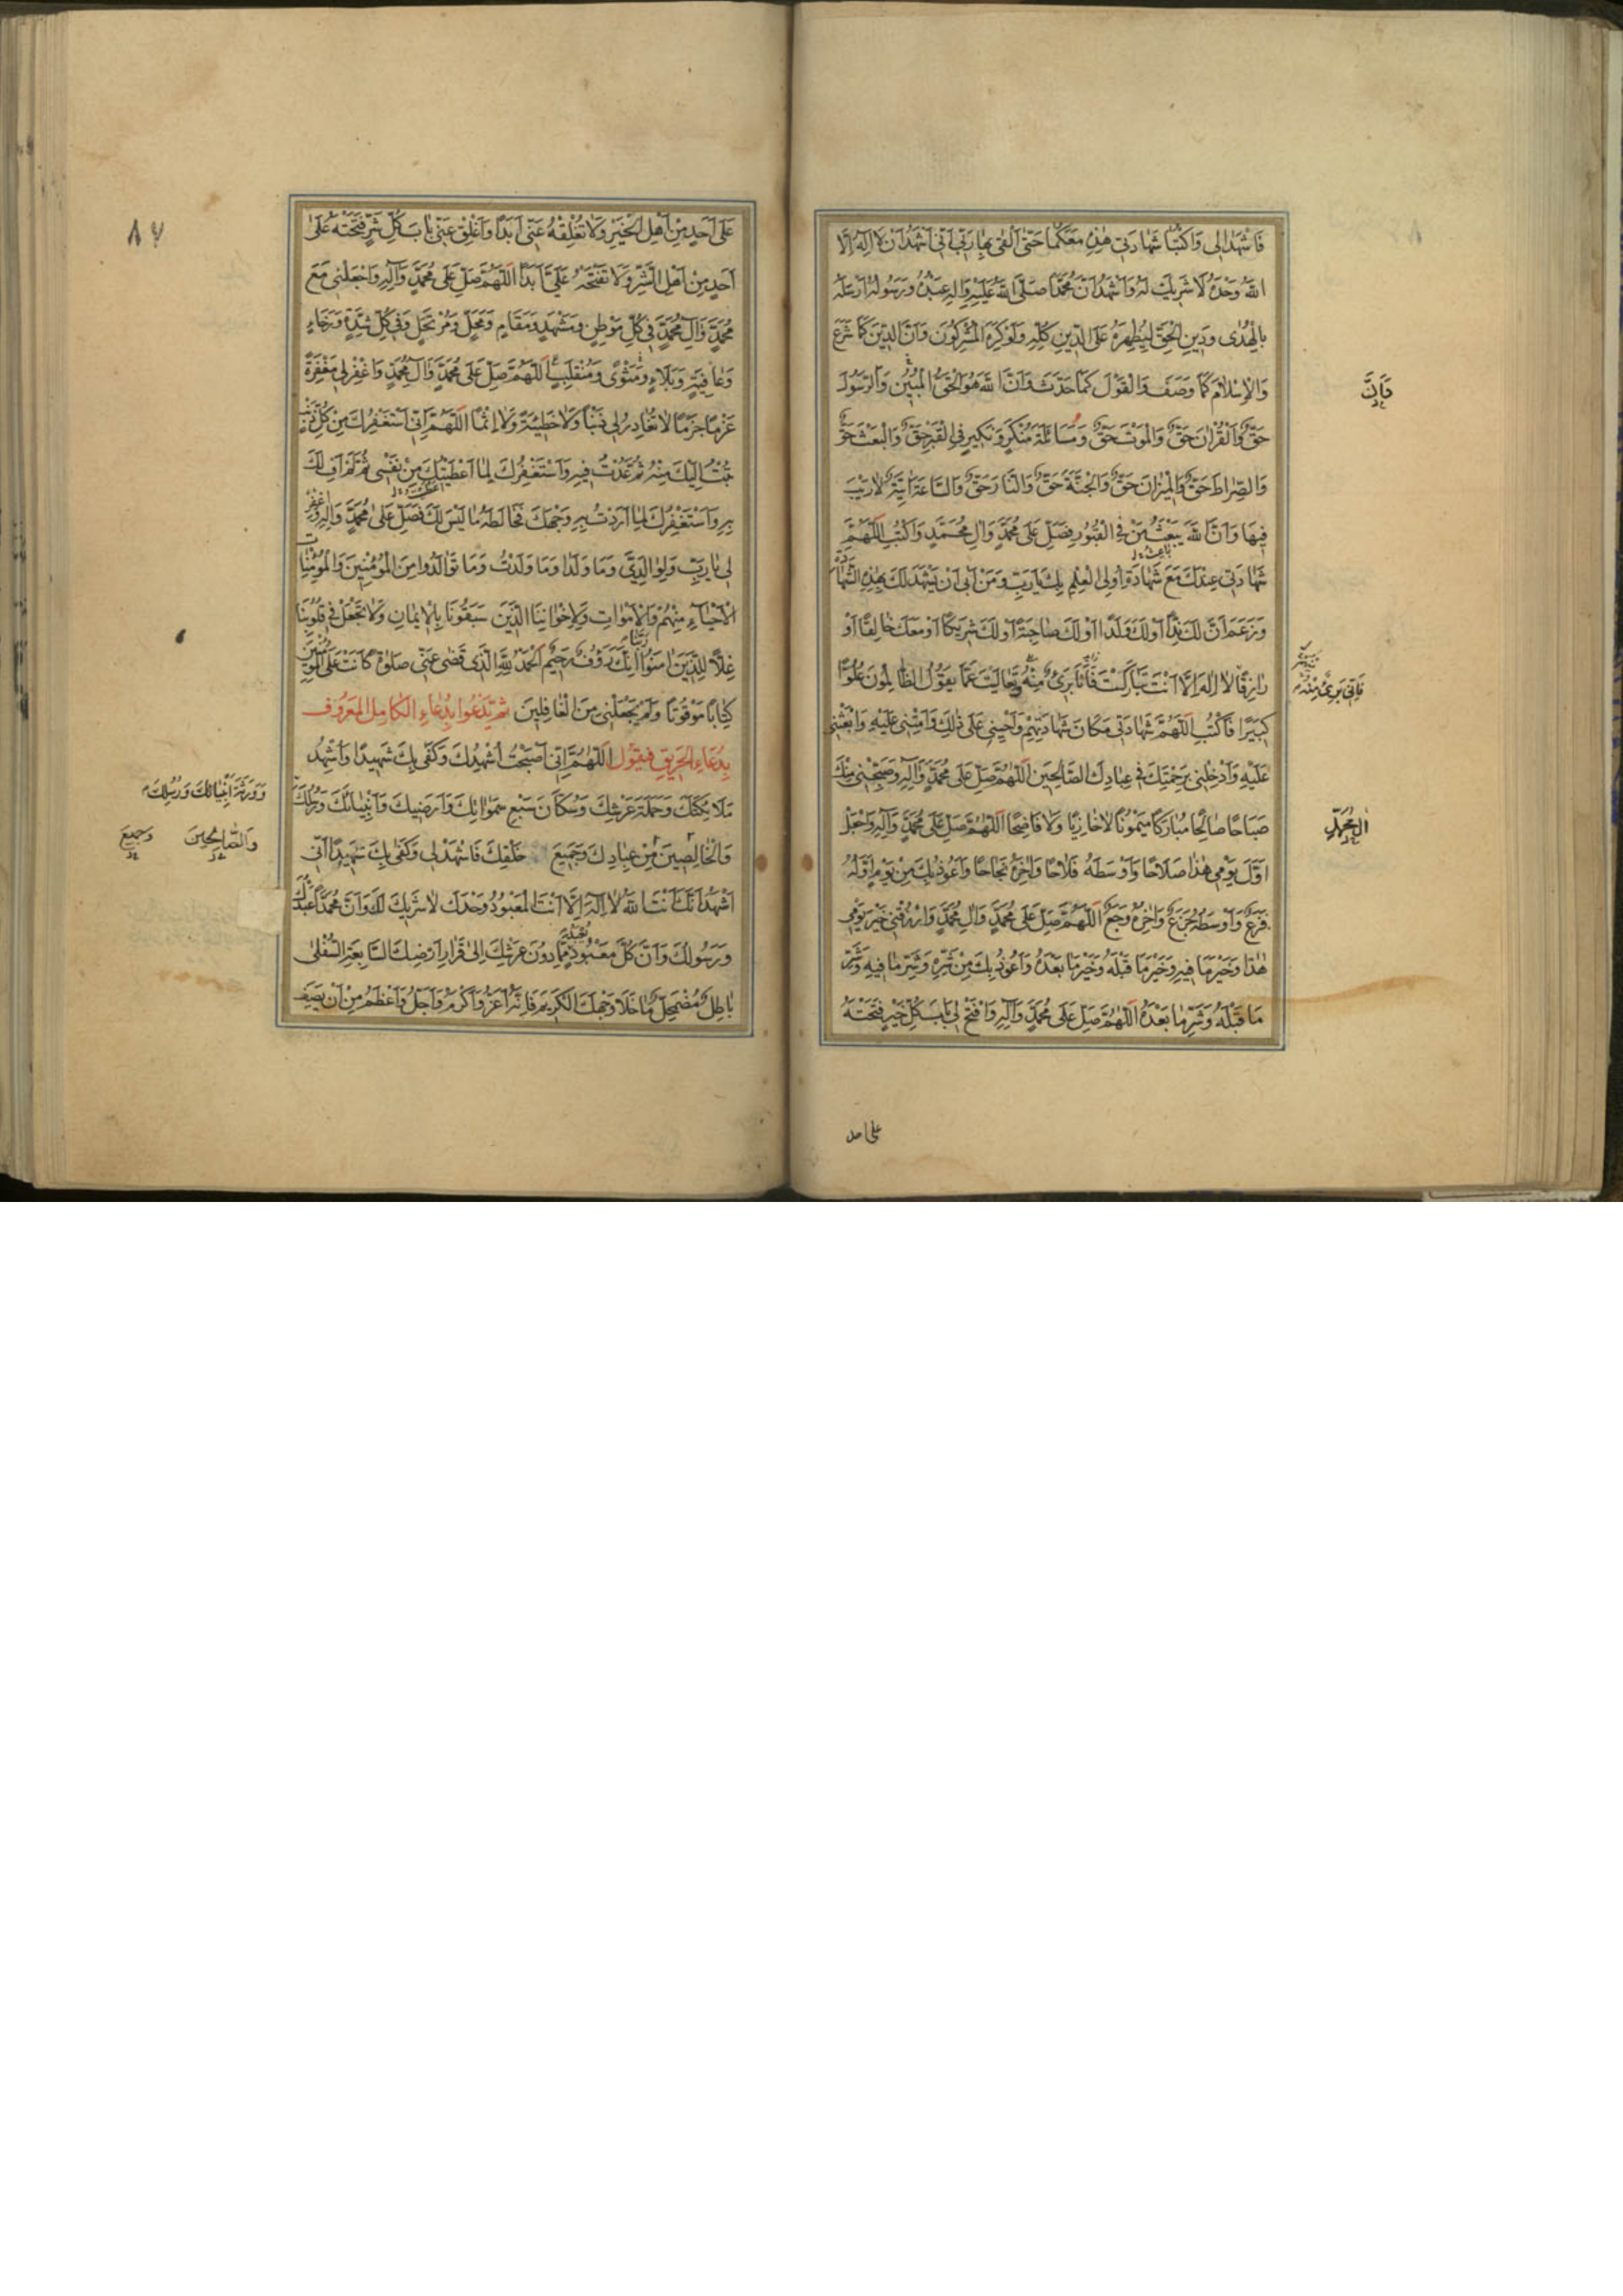 فَاشْهَدا لِي وَاكْتُبا شَهادَتي هٰذِهِ مَعَكُما حَتّى اَلْقى بِها رَبّي اَنّي اَشْهَدُ اَنْ لا اِلٰهَ اِلَّا
اللّٰهُ وَحْدَهُ لا شَريكَ لَهُ وَاَشْهَدُ اَنَّ مُحَمَّدًا صَلَّى اللّٰهُ عَلَيْهِ وَاٰلِهِ عَبْدُهُ وَرَسُولُهُ اَرْسَلَهُ
بِالْهُدٰى وَدينِ الْحَقِّ لِيُظْهِرَهُ عَلَى الدّينِ كُلِّهِ وَلَوْ كَرِهَ الْمُشْرِكُونَ وَاَنَّ الدّينَ كَما شَرَعَ
وَالْاِسْلامَ كَما وَصَفَ وَالْقَوْلَ كَما حَدَّثَ وَاَنَّ اللّٰهَ هُوَ الْحَقُّ الْمُبينُ وَالرَّسُولَ
حَقٌّ وَالْقُرْاٰنَ حَقٌّ وَالْمَوْتَ حَقٌّ وَمُسائَلَةَ مُنْكَرٍ وَنَكيرٍ فِي الْقَبْرِ حَقٌّ وَالْبَعْثَ حَقٌّ
وَالصِّراطَ حَقٌّ وَالْميزانَ حَقٌّ وَالْجَنَّةَ حَقٌّ وَالنّارَ حَقٌّ وَالسّاعَةَ اٰتِيَةٌ لا رَيْبَ
فيها وَاَنَّ اللّٰهَ يَبْعَثُ مَنْ فِي الْقُبُورِ فَصَلِّ عَلى مُحَمَّدٍ وَاٰلِ مُحَمَّدٍ وَاكْتُبِ اللّٰهُمَّ
شَهادَتي عِنْدَكَ مَعَ شَهادَةِ اُولِي الْعِلْمِ بِكَ يا رَبِّ وَمَنْ اَبى اَنْ يَشْهَدَ لَكَ بِهٰذِهِ الشَّهادَةِ
وَزَعَمَ اَنَّ لَكَ نِدًّا اَوْ لَكَ وَلَدًا اَوْ لَكَ صاحِبَةً اَوْ لَكَ شَريكًا اَوْ مَعَكَ خالِقًا اَوْ
رازِقًا لا اِلٰهَ اِلّا اَنْتَ تَبارَكْتَ فَاَنَا بَرىءٌ مِنْهُ وَتَعالَيْتَ عَمّا يَقُولُ الظّالِمُونَ عُلُوًّا
كَبيرًا فَاكْتُبِ اللّٰهُمَّ شَهادَتي مَكانَ شَهادَتِهِمْ وَاَحْيِني عَلى ذٰلِكَ وَاَمِتْني عَلَيْهِ وَابْعَثْني
عَلَيْهِ وَاَدْخِلْني بِرَحْمَتِكَ في عِبادِكَ الصّالِحينَ اَللّٰهُمَّ صَلِّ عَلى مُحَمَّدٍ وَاٰلِهِ وَصَبِّحْني مِنْكَ
صَباحًا صالِحًا مُبارَكًا مَيْمُونًا لا خازِيًا وَلا فاضِحًا اَللّٰهُمَّ صَلِّ عَلى مُحَمَّدٍ وَاٰلِهِ وَاجْعَلْ
اَوَّلَ يَوْمي هٰذا صَلاحًا وَاَوْسَطَهُ فَلاحًا وَاٰخِرَهُ نَجاحًا وَاَعُوذُ بِكَ مِنْ يَوْمٍ اَوَّلُهُ
فَزَعٌ وَاَوْسَطُهُ جَزَعٌ وَاٰخِرُهُ وَجَعٌ اَللّٰهُمَّ صَلِّ عَلى مُحَمَّدٍ وَاٰلِ مُحَمَّدٍ وَارْزُقْني خَيْرَ يَوْمي
هٰذا وَخَيْرَ ما فيهِ وَخَيْرَ ما قَبْلَهُ وَخَيْرَ ما بَعْدَهُ وَاَعُوذُ بِكَ مِنْ شَرِّهِ وَشَرِّ ما فيهِ وَشَرِّ
ما قَبْلَهُ وَشَرِّ ما بَعْدَهُ اَللّٰهُمَّ صَلِّ عَلى مُحَمَّدٍ وَاٰلِهِ وَافْتَحْ لي بابَ كُلِّ خَيْرٍ فَتَحْتَهُ
فَاِنَّ
فَاِنّي بَرىءٌ مِنْهُ
اٰلِ مُحَمَّدٍ
على احد
٨٧
عَلى اَحَدٍ مِنْ اَهْلِ الْخَيْرِ وَلا تُغْلِقْهُ عَنّي اَبَدًا وَاَغْلِقْ عَنّي بابَ كُلِّ شَرٍّ فَتَحْتَهُ عَلى
اَحَدٍ مِنْ اَهْلِ الشَّرِّ وَلا تَفْتَحْهُ عَلَيَّ اَبَدًا اَللّٰهُمَّ صَلِّ عَلى مُحَمَّدٍ وَاٰلِهِ وَاجْعَلْني مَعَ
مُحَمَّدٍ وَاٰلِ مُحَمَّدٍ في كُلِّ مَوْطِنٍ وَمَشْهَدٍ وَمَقامٍ وَمَحَلٍّ وَمُرْتَحَلٍ وَفي كُلِّ شِدَّةٍ وَرَخاءٍ
وَعافِيَةٍ وَبَلاءٍ وَمَثْوًى وَمُنْقَلَبٍ اَللّٰهُمَّ صَلِّ عَلى مُحَمَّدٍ وَاٰلِ مُحَمَّدٍ وَاغْفِرْ لي مَغْفِرَةً
عَزْمًا جَزْمًا لا تُغادِرُ لي ذَنْبًا وَلا خَطيئَةً وَلا اِثْمًا اَللّٰهُمَّ اِنّي اَسْتَغْفِرُكَ مِنْ كُلِّ ذَنْبٍ
تُبْتُ اِلَيْكَ مِنْهُ ثُمَّ عُدْتُ فيهِ وَاَسْتَغْفِرُكَ لِما اَعْطَيْتُكَ مِنْ نَفْسي ثُمَّ لَمْ اَفِ لَكَ
بِهِ وَاَسْتَغْفِرُكَ لِما اَرَدْتُ بِهِ وَجْهَكَ فَخالَطَهُ ما لَيْسَ لَكَ فَصَلِّ عَلى مُحَمَّدٍ وَاٰلِهِ وَاغْفِرْ
لي يا رَبِّ وَلِوالِدَيَّ وَما وَلَدا وَما وَلَدْتُ وَما تَوالَدُوا مِنَ الْمُؤْمِنينَ وَالْمُؤْمِناتِ
الْاَحْياءِ مِنْهُمْ وَالْاَمْواتِ وَلِاِخْوانِنَا الَّذينَ سَبَقُونا بِالْاِيمانِ وَلا تَجْعَلْ في قُلُوبِنا
غِلًّا لِلَّذينَ اٰمَنُوا رَبَّنا اِنَّكَ رَؤُفٌ رَحيمٌ اَلْحَمْدُ لِلّٰهِ الَّذي قَضى عَنّي صَلٰوةً كانَتْ عَلَى الْمُؤْمِنينَ
كِتابًا مَوْقُوتًا وَلَمْ يَجْعَلْني مِنَ الْغافِلينَ ثم يَدْعُوا بِدُعاءِ الكامِل المَعروف
بِدُعاءِ الحَريقِ فيقول اَللّٰهُمَّ اِنّي اَصْبَحْتُ اُشْهِدُكَ وَكَفى بِكَ شَهيدًا وَاُشْهِدُ
مَلائِكَتَكَ وَحَمَلَةَ عَرْشِكَ وَسُكّانَ سَبْعِ سَمٰواتِكَ وَاَرَضيكَ وَاَنْبِيائَكَ وَرُسُلَكَ
وَالْخالِصينَ مِنْ عِبادِكَ وَجَميعَ خَلْقِكَ فَاشْهَدْ لي وَكَفى بِكَ شَهيدًا اَنّي
اَشْهَدُ اَنَّكَ اَنْتَ اللّٰهُ لا اِلٰهَ اِلّا اَنْتَ الْمَعْبُودُ وَحْدَكَ لا شَريكَ لَكَ وَاَنَّ مُحَمَّدًا عَبْدُكَ
وَرَسُولُكَ وَاَنَّ كُلَّ مَعْبُودٍ مِمّا دُونَ عَرْشِكَ اِلى قَرارِ اَرْضِكَ السّابِعَةِ السُّفْلى
باطِلٌ مُضْمَحِلٌّ ما خَلا وَجْهَكَ الْكَريمَ فَاِنَّهُ اَعَزُّ وَاَكْرَمُ وَاَجَلُّ وَاَعْظَمُ مِنْ اَنْ يَصِفَ
وَوَرَثَةَ اَنْبِيائِكَ وَرُسُلِكَ
وَالصّالِحينَ
وَجَميعَ